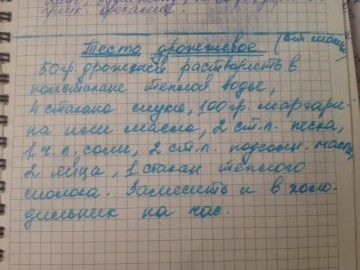 трех крошками.
Тесто дрожжевое (от мамы)
50 гр. дрожжей растворить в
полстакане теплой воды,
4 стакана муки, 100 гр. маргари-
на или масла, 2 ст.л. песка,
1 ч.л. соли, 2 ст.л. подсолн. масла,
2 яйца, 1 стакан теплого
молока. Замесить и в холо-
дильник на час.